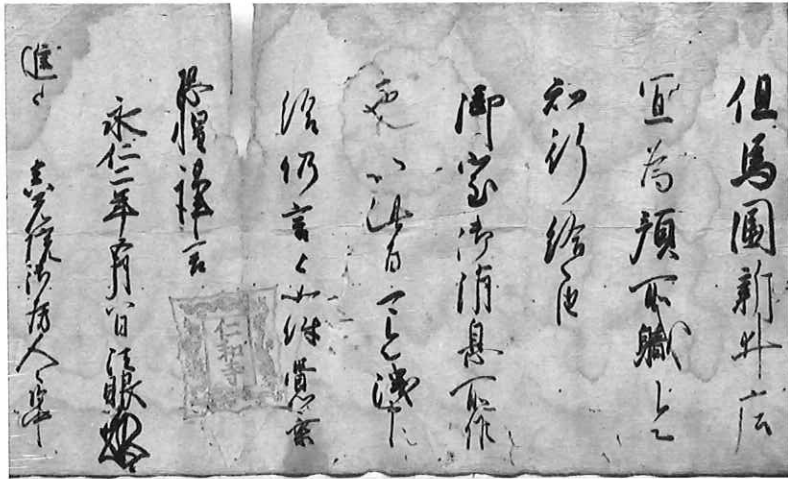 但馬国新井庄
宜為預所職之由
知行給之由
御室御消息所候
也以此旨可令洩申
給仍言上如件賢棄
恐惶謹言
永仁二年五月八日法眼
進上 真光院御房人々御中
仁和寺